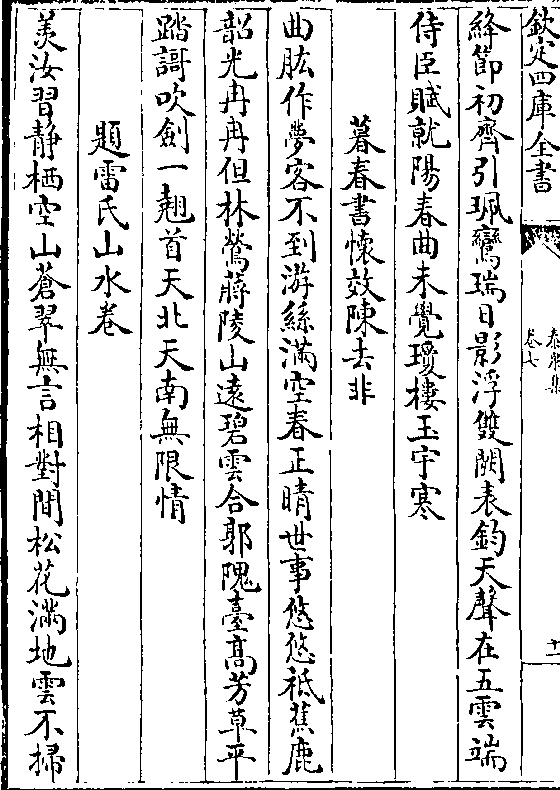 欽定四庫全書
卷七
十一
絳節初齊引珮鸞瑞日影浮雙闕表鈞天聲在五雲端
侍臣賦就陽春曲未覺瓊樓玉宇寒
暮春書懷效陳去非
曲肱作夢客不到游絲滿空春正晴世事悠悠祗蕉鹿
韶光冉冉但林鶯蔣陵山遠碧雲合郭隗臺高芳草平
踏謌吹劍一翹首天北天南無限情
題雷氏山水卷
羨汝習静栖空山蒼翠無言相對間松花滿地雲不掃